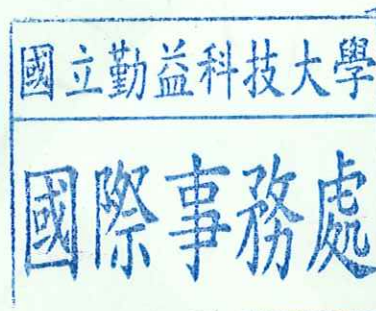 國立勤益科技大學
國際事務處